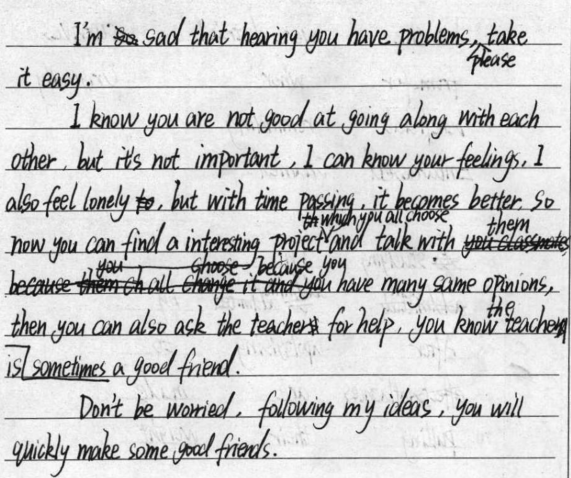 I'm so sad that hearing you have problems, please take
it easy.
I know you are not good at going along with each
other, but it's not important, I can know your feelings, I
also feel lonely to, but with time passing, it becomes better so
now you can find a interesting project which you all choose and talk with them you classmates,
because them ch all change it and you choose because you have many same opinions,
then you can also ask the teacher for help, you know the teacher
is sometimes a good friend.
Don't be worried, following my ideas, you will
quickly make some good friends.